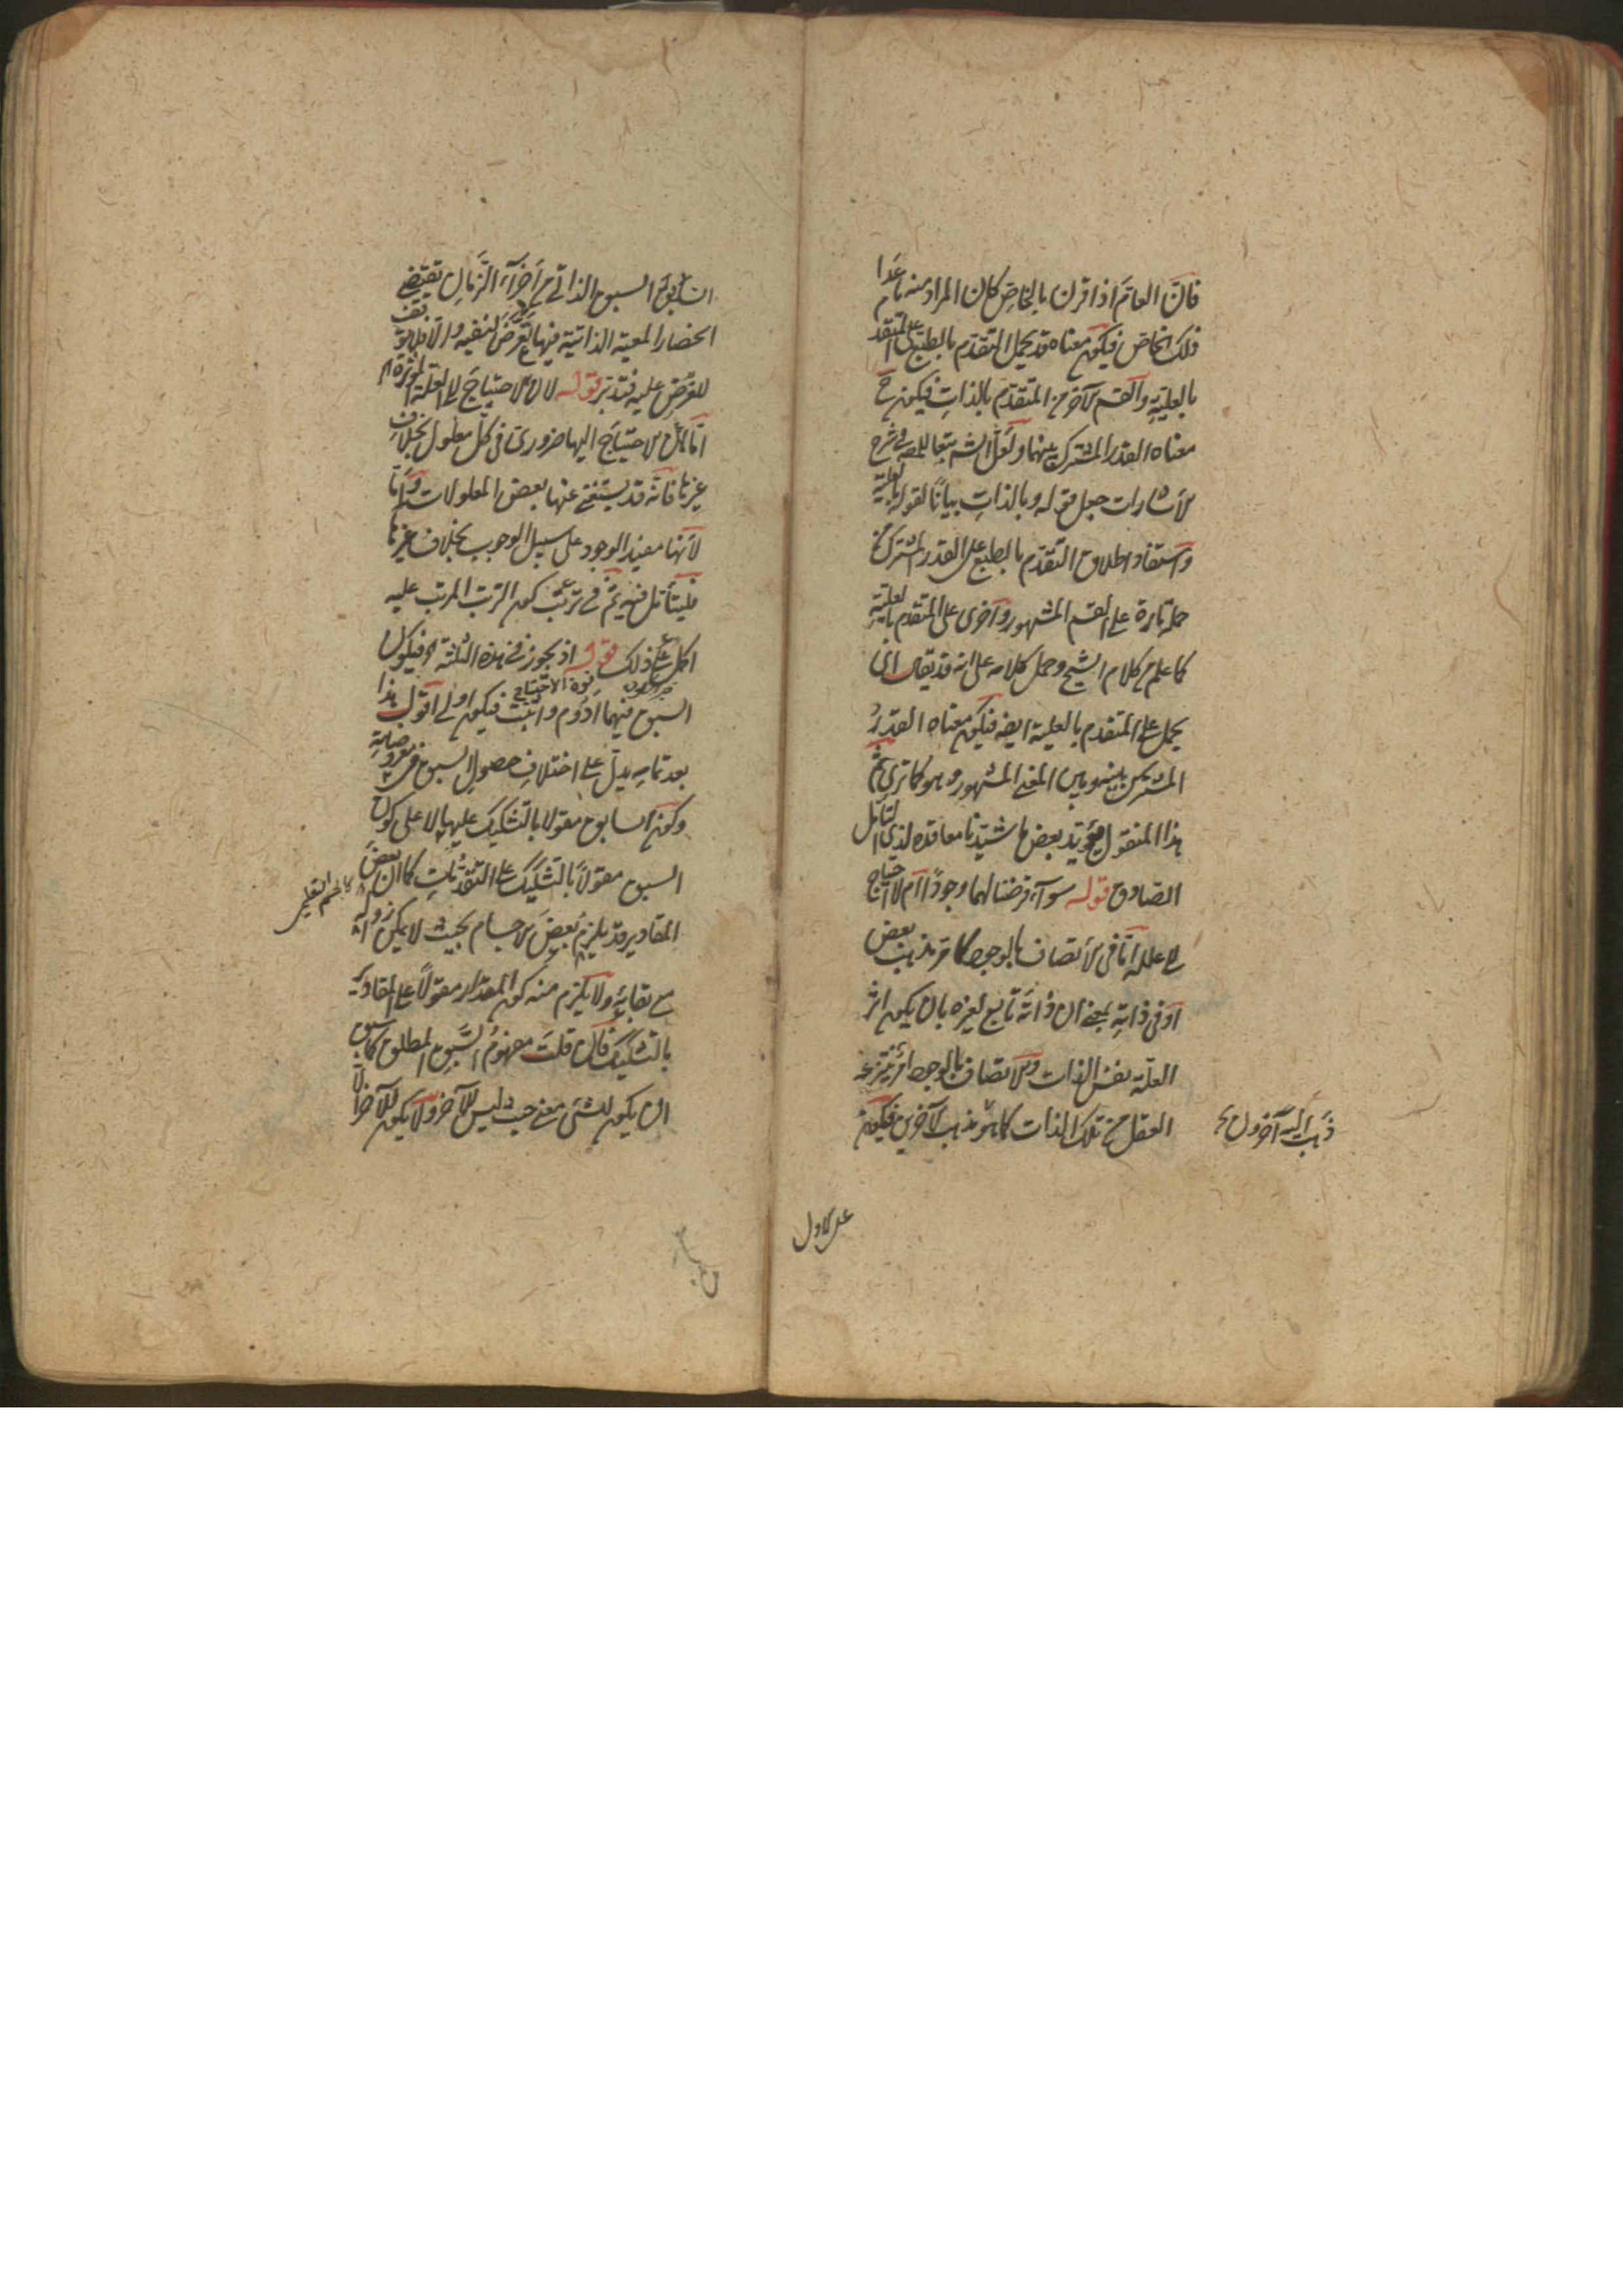 فان العام اذا قرن بالخاص كان المراد منه ما عدا
ذلك الخاص فيكون معناه قد يحمل التقدم بالطبع على المتقدم
بالعلية والقسم الآخر من المتقدم بالذات فيكون ح
معناه القدر المشترك بينهما ولعل الش تبعا للمص في شرح
الاشارات جعل قوله وبالذات بيانا لقوله بالعلية
واستفاد اطلاق التقدم بالطبع على القدر المشترك من
حمله تارة على القسم المشهور واخرى على المتقدم بالعلية
كما علم من كلام الشيخ وحمل كلامه على انه قد يقال اى
يحمل على المتقدم بالعلية ايضا فيكون معناه القدر
المشترك بينه وبين المعنى المشهور وهو كما ترى ثم
هذا المنقول يؤيد بعض ما شيدنا معاقده لذى التأمل
الصادق قوله سواء فرضنا لهما وجودا ام لا احتياج
الى علله اما فى الاتصاف بالوجود كما هو مذهب بعض
او فى ذاته بمعنى ان ذاته تابع لغيره بان يكون اثر
العلة نفس الذات والاتصاف بالوجود امر ينتزعه
العقل من تلك الذات كما هو مذهب الآخرين فيكون
ذهب اليه آخرون
على الاول
السبق الذاتى من اجزاء الزمان يقتضى
انحصار المعية الذاتية فيها تعرض لنفيه والا فلا
للتعرض عليه فتدبر قوله لان الاحتياج الى العلة المؤثرة
اما لان الاحتياج اليها ضرورى فى كل معلول بخلاف
غيرها فانه قد يستغنى عنها بعض المعلولات واما
لانها مفيد الوجود على سبيل الوجوب بخلاف غيرها
فليتأمل فيه ثم فى ترتب كون الترتب المرتب عليه
اكمل على ذلك قوله اذ يجوز فى هذه الثلثة فيكون
قوة الاحتياج
السبق فيهما ادوم واثبت فيكون اولى اقول هذا
بعد تمامه يدل على اختلاف حصول السبق فى معروضاته
وكون السابق مقولا بالتشكيك عليها لا على كون
السبق مقولا بالتشكيك على التقدمات كما ان بعض
كالجسم التعليمى
المقادير قد يلزم بعض الاجسام بحيث لا يمكن زواله
مع بقائه ولا يلزم منه كون المقدار مقولا على المقادير
بالتشكيك فان قلت مفهوم السبق المطلق كما سبق
ان يكون للشئ معنى حيث ليس للآخر ولا يكون للآخر الا